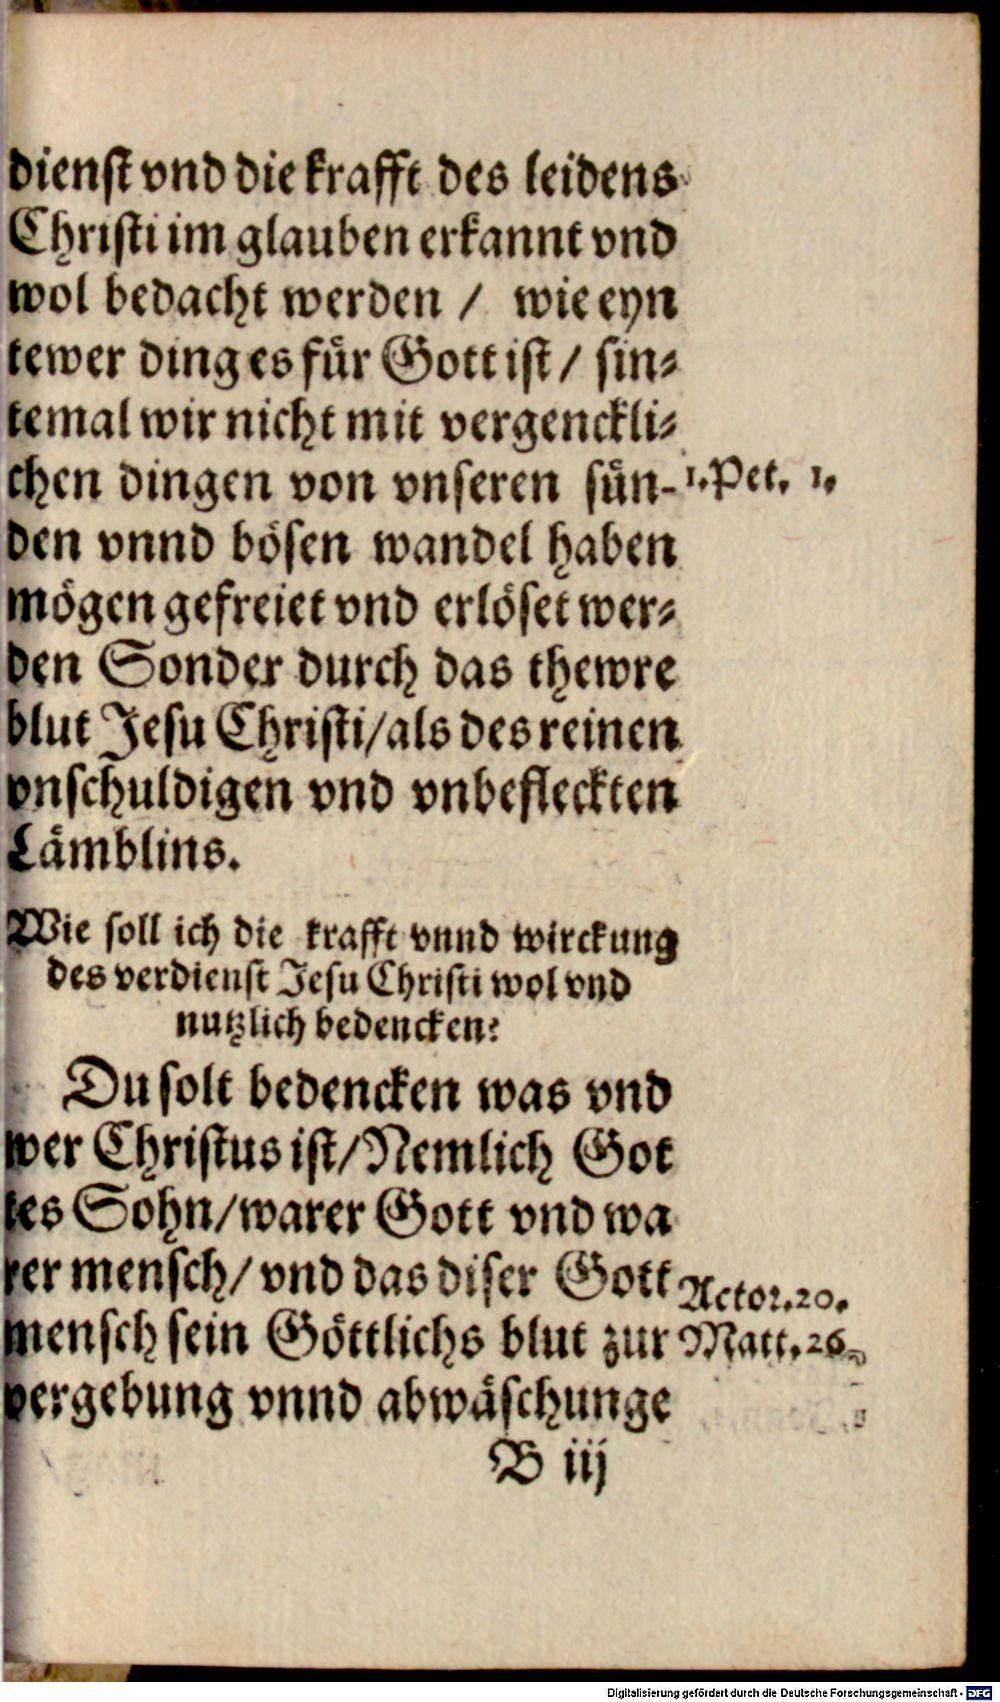 dienst vnd die krafft des leidens
Christi im glauben erkannt vnd
wol bedacht werden / wie eyn
tewer ding es für Gott ist / sin-
temal wir nicht mit vergenckli-
chen dingen von vnseren sün- 1. Pet. 1.
den vnnd bösen wandel haben
mögen gefreiet vnd erlöset wer-
den Sonder durch das thewre
blut Jesu Christi / als des reinen
vnschuldigen vnd vnbefleckten
Lämblins.
Wie soll ich die krafft vnnd wirckung
des verdienst Jesu Christi wol vnd
nutzlich bedencken?
Du solt bedencken was vnd
wer Christus ist / Nemlich Got
tes Sohn / warer Gott vnd wa
rer mensch / vnd das diser Gott Actor. 20.
mensch sein Göttlichs blut zur Matt. 26.
vergebung vnnd abwäschunge
B iij
Digitalisierung gefördert durch die Deutsche Forschungsgemeinschaft - DFG